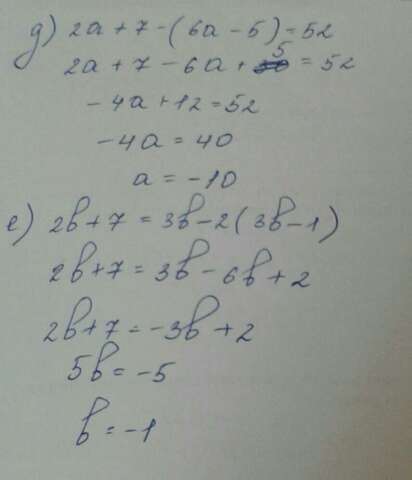 д) 2a + 7 - (6a - 5) = 52
2a + 7 - 6a + 5 = 52
-4a + 12 = 52
-4a = 40
a = -10
е) 2b + 7 = 3b - 2(3b - 1)
2b + 7 = 3b - 6b + 2
2b + 7 = -3b + 2
5b = -5
b = -1